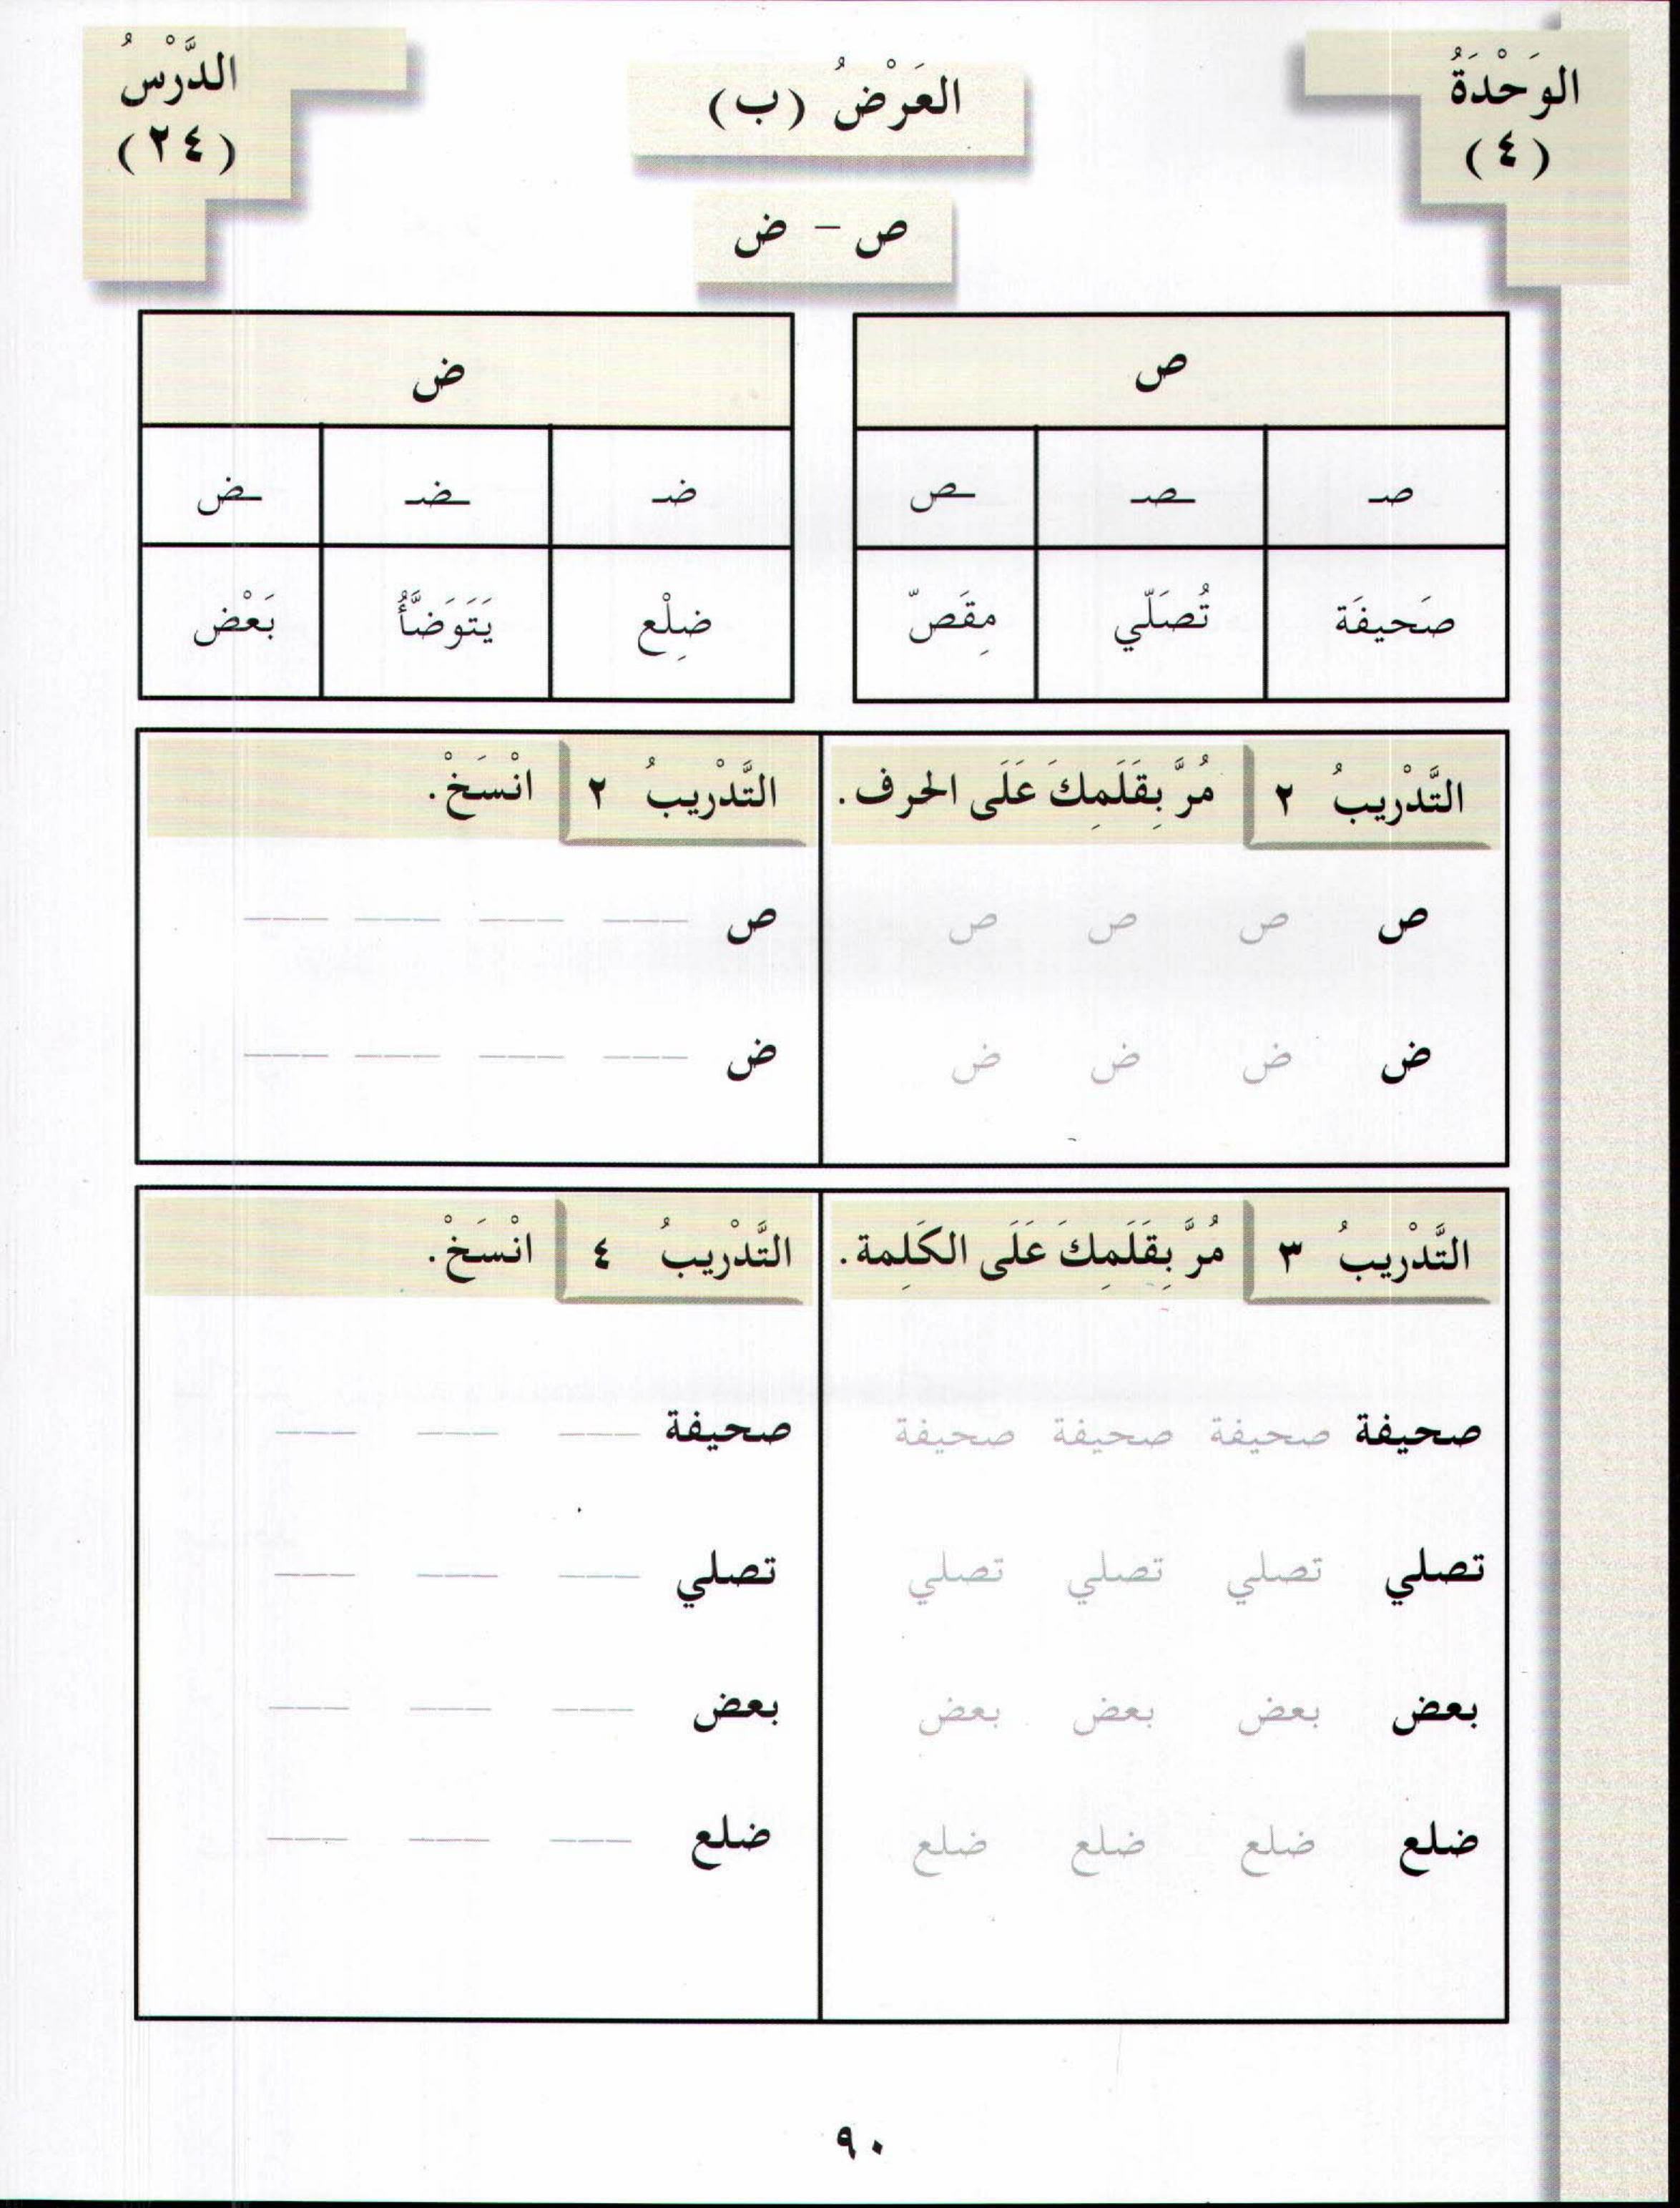 الوَحْدَةُ
(٤)
العَرْضُ (ب)
الدَّرْسُ
(٢٤)
ص - ض
ص
صـ ـصـ ـص
صَحيفَة تُصَلّي مِقَصّ
ض
ضـ ـضـ ـض
ضِلْع يَتَوَضَّأُ بَعْض
التَّدْريبُ ٢ مُرَّ بِقَلَمِكَ عَلَى الحرف.
ص ص ص ص
ض ض ض ض
التَّدْريبُ ٢ انْسَخْ.
ص
ض
التَّدْريبُ ٣ مُرَّ بِقَلَمِكَ عَلَى الكَلِمة.
صحيفة صحيفة صحيفة صحيفة
تصلي تصلي تصلي تصلي
بعض بعض بعض بعض
ضلع ضلع ضلع ضلع
التَّدْريبُ ٤ انْسَخْ.
صحيفة
تصلي
بعض
ضلع
٩٠